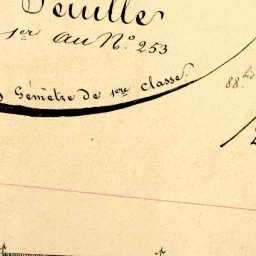 Feuille
1er au N.o 253
Géomètre de 1ere classe.
88.bis